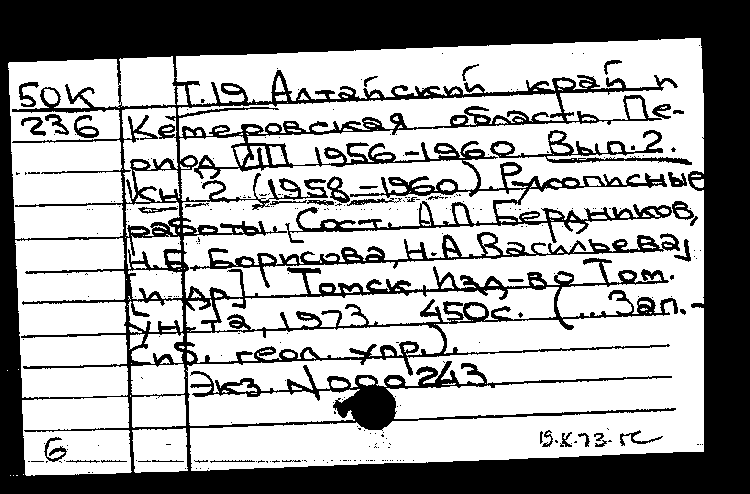 50К Т.19. Алтайский край и
236 Кемеровская область. Пе-
риод VIII 1956-1960. Вып.2.
Кн. 2 (1958-1960). Рукописные
работы. [Сост. А.П. Бердников,
Н.Б. Борисова, Н.А. Васильева,
и др]. Томск, Изд-во Том.
ун-та, 1973. 450с. (...Зап.-
Сиб. геол. упр.).
Экз. N 000243.
6